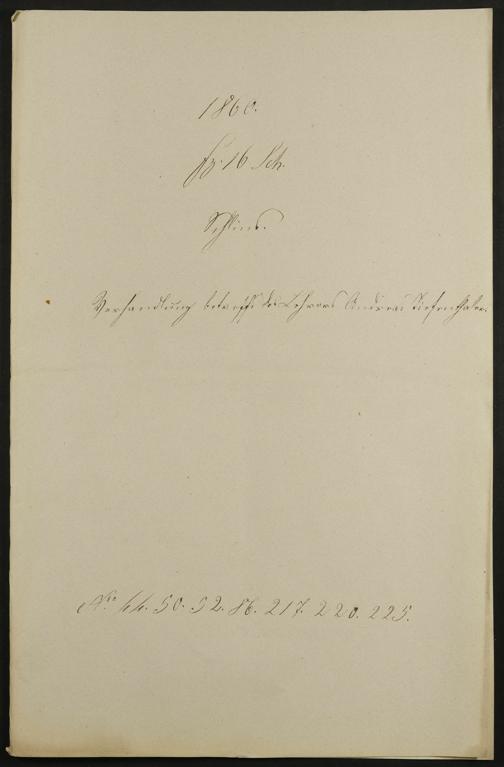 1860.
Fz. 16 Sch.
Schlins.
Verhandlung betreffs des Lehrers Andreas Tiefenthaler.
No 44. 50. 52. 86. 217. 220. 225.